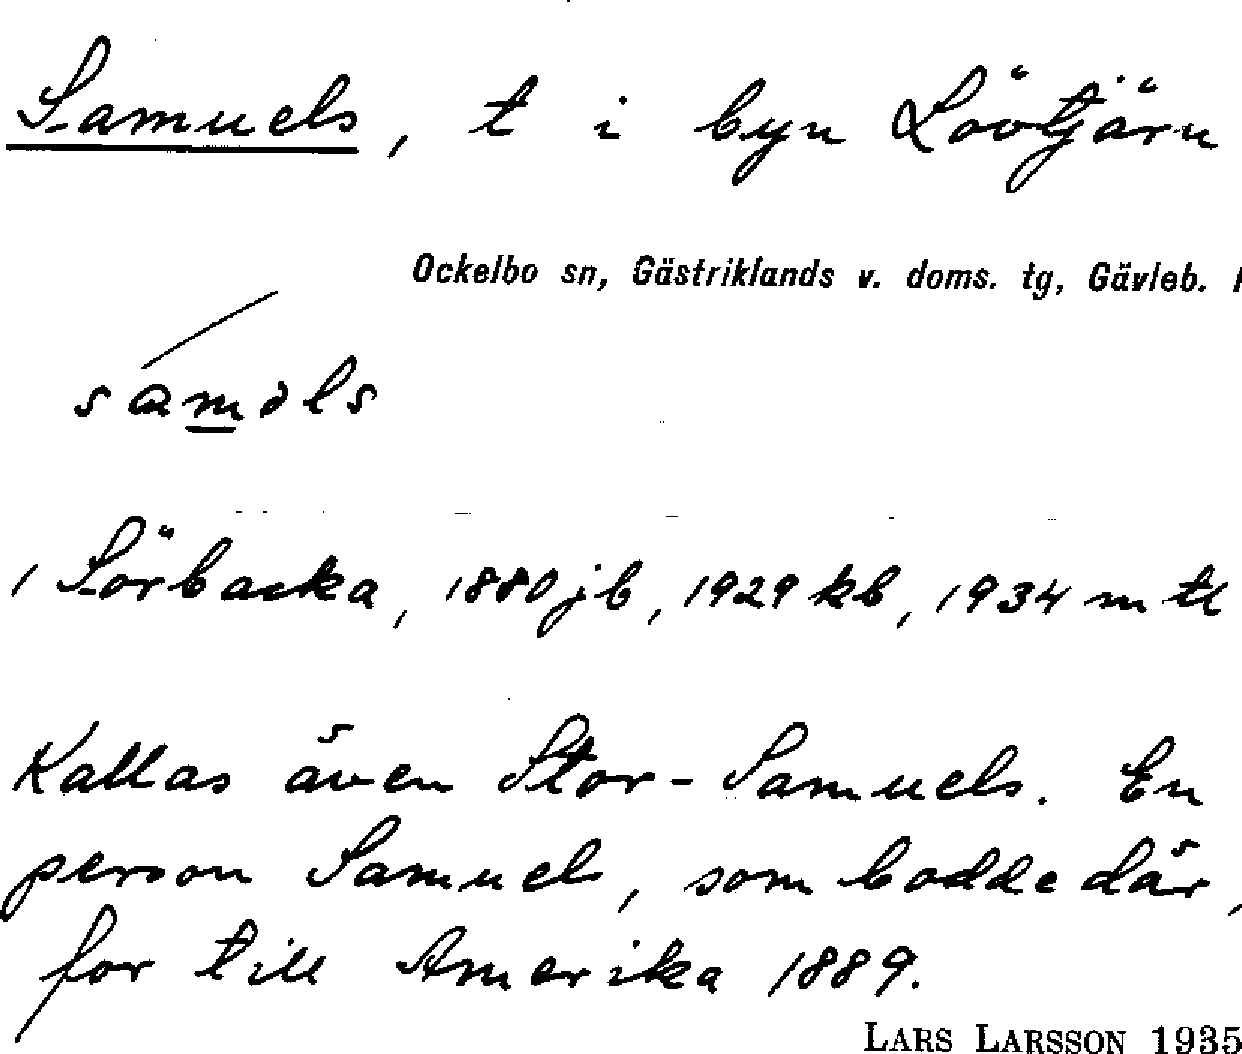 Samuels, t i byn Lövtjärn
Ockelbo sn, Gästriklands v. doms. tg, Gävleb. l
saməls
1 Sörbacka, 1880 jb, 1929 kb, 1934 mtl
Kallas även Stor-Samuels. En
person Samuel, som bodde där,
for till Amerika 1889.
LARS LARSSON 1935